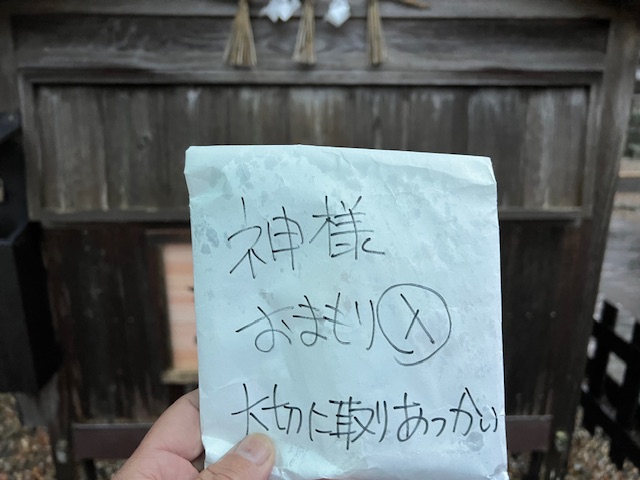 神様
おまもり入
大切に取りあつかい